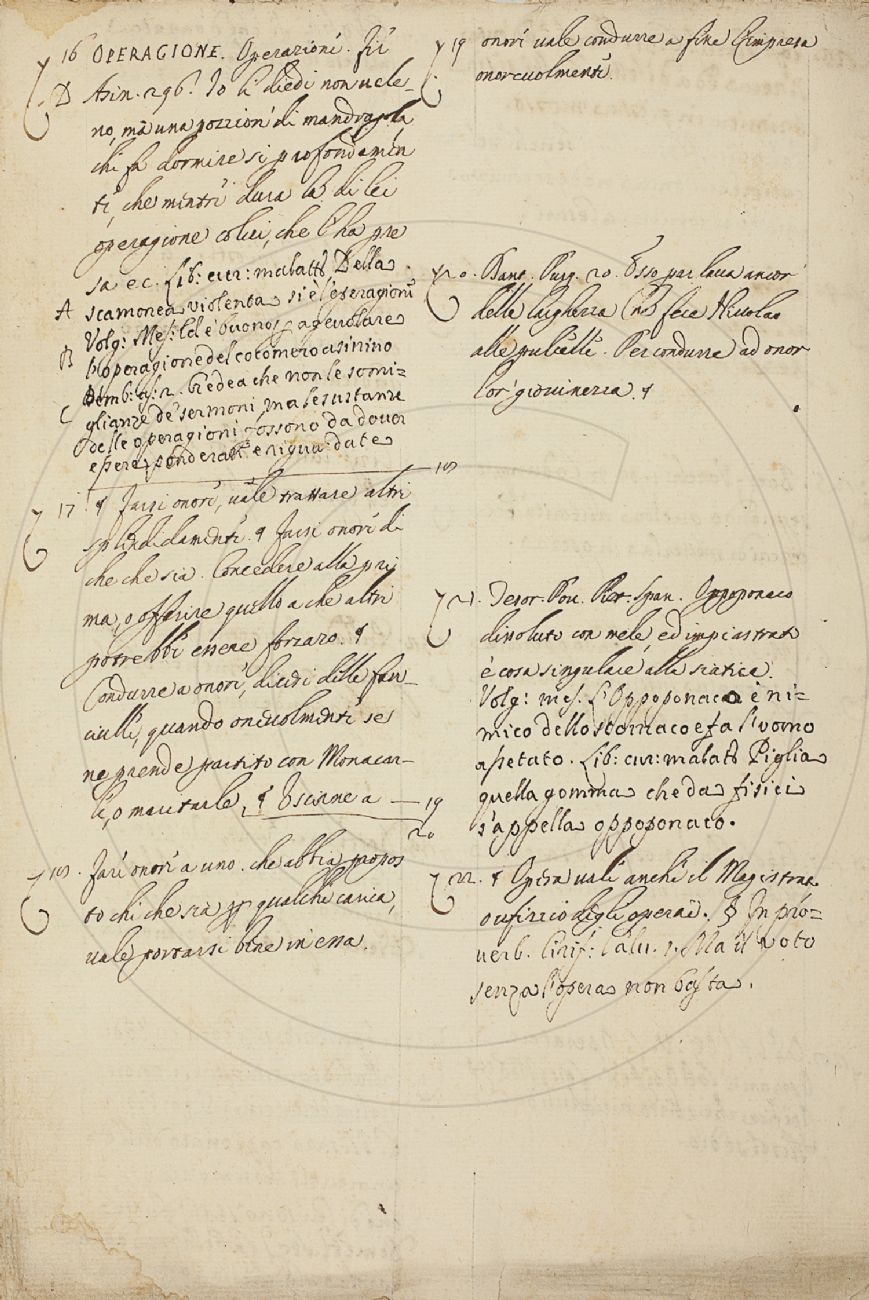 16 OPERAGIONE. Operazione. Fir.
D Asin. 296. Io li diedi non vele-
no, mà una pozzion di mandragola
che fa dormire si profondamen
te, che mentre dura la di lei
operagione colui, che l'ha pre
sa ec. Lib: cur: malatt: Della
A scamonea violenta si è l'operagione
B Volg: Mes: Ed è buono p agevolare
la operagione del cocomero asinino
C Bemb: as: 2. Credea che non le somi=
glianze de' sermoni, ma le sustanze
delle operagioni fossono da dover
essere ponderate e risguardate
18
17 ¶ Farsi onore, vale trattare altri
splendidamente. ¶ Farsi onore di
che che sia. Concedere alla pri
ma, o offerire quello a che altri
potrebbe essere forzato. ¶
Condurre a onore, dicesi delle fan-
ciulle, quando onevolmente se
ne prende partito con Monacar-
le, o maritarle, ¶ Uscirne a — 19
20
18. Fare onore a uno che abbia propos
to chi che sia p qualche carica,
vale portarsi bene in essa.
19 onore vale condurre a fine l'impresa
onorevolmente.
20. Dant. Purg. 20. Esso parlava ancor
delle larghezza Che fece Niccolao
alle pulcelle Per condurre ad onor
lor' giovinezza ¶
21. Tesor. Pov. Piet. Span. Oppoponaco
dissoluto con mele, ed impiastrato
è cosa singulare alla sciatica.
Volg: mes. L'Oppoponaco è ni=
mico dello stomaco e fa l'uomo
asetato. Lib: cur: malatt: Piglia
quella gomma che da fisici
s'appella oppoponaco.
22. ¶ Opera vale anche il Magistrato
o ufizio degli operai. § In pro=
verb. Cirif: Calv. 1. Ma il voto
senza l'opera non basta.